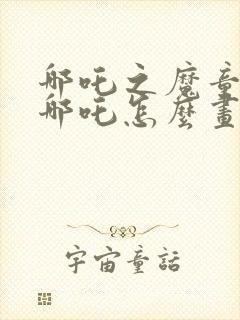 哪吒之魔童
哪吒怎麼畫
宇宙童話